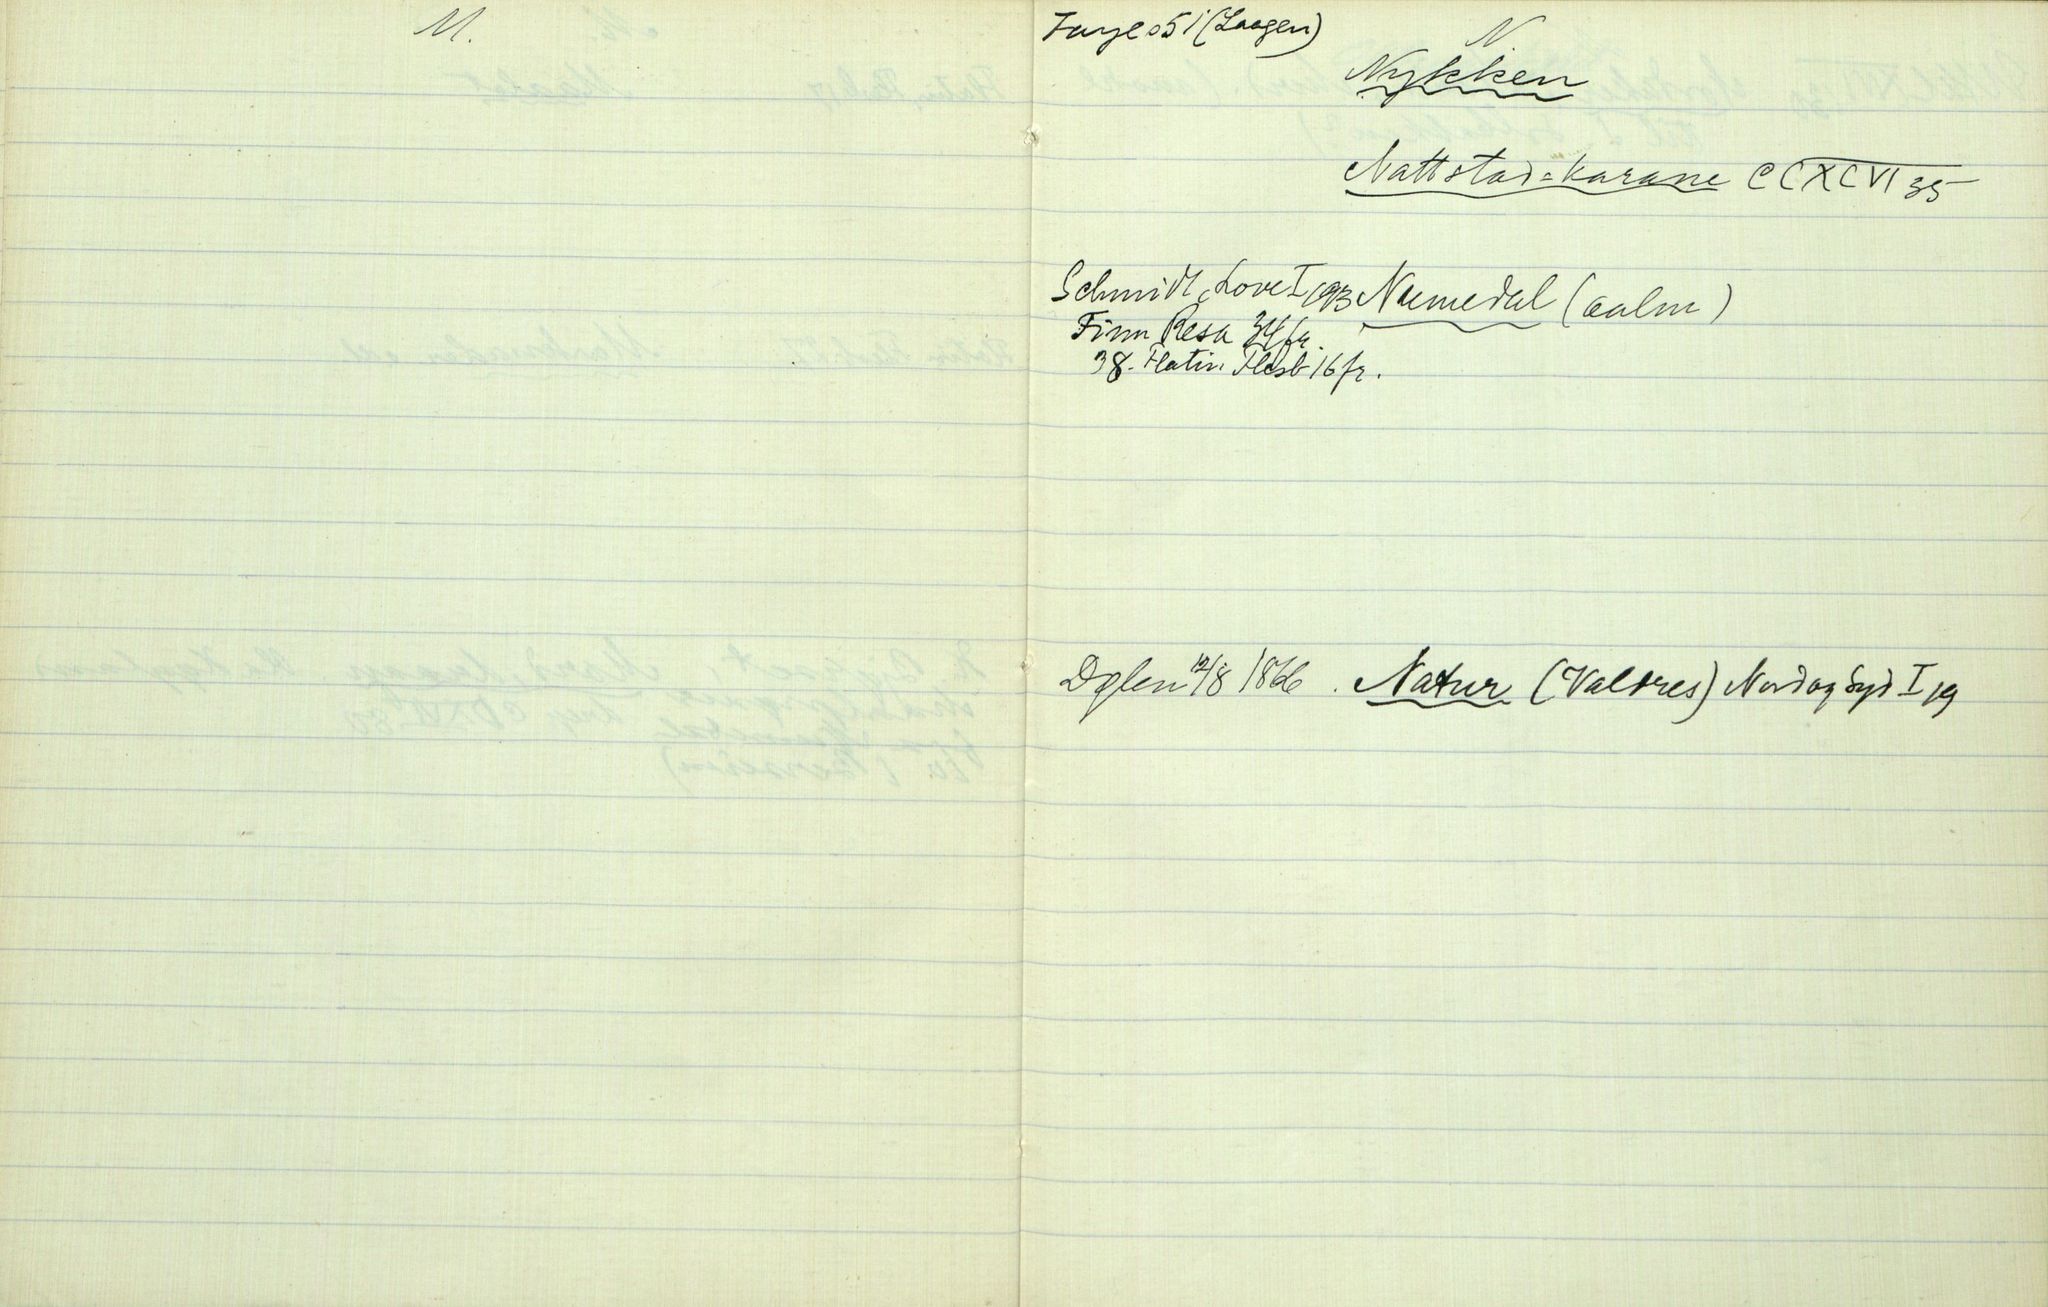 M.
N
Faye s 51 (Laagen) Nykken
Nattstad-karane CCXCVI 35
Schmidt, Love I 193 Numedal (aalm)
Finn Resa 34 fr.
38. Flatin Flesb 16 fr.
Dølen 12/8 1866. Natur (Valdres) Nord og Syd I 19